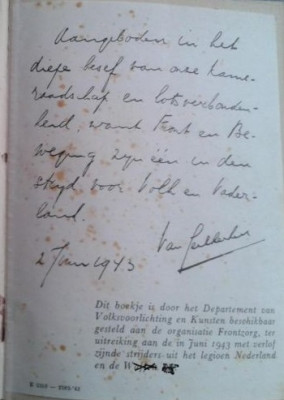 Aangeboden in het
diepe besef van onze kame-
raadschap en lotsverbonden-
heid, want Front en Be-
weging zijn één in den
strijd voor Volk en Vader-
land.
2 Juni 1943
Dit boekje is door het Departement van
Volksvoorlichting en Kunsten beschikbaar
gesteld aan de organisatie Frontzorg, ter
uitreiking aan de in Juni 1943 met verlof
zijnde strijders uit het legioen Nederland
en de